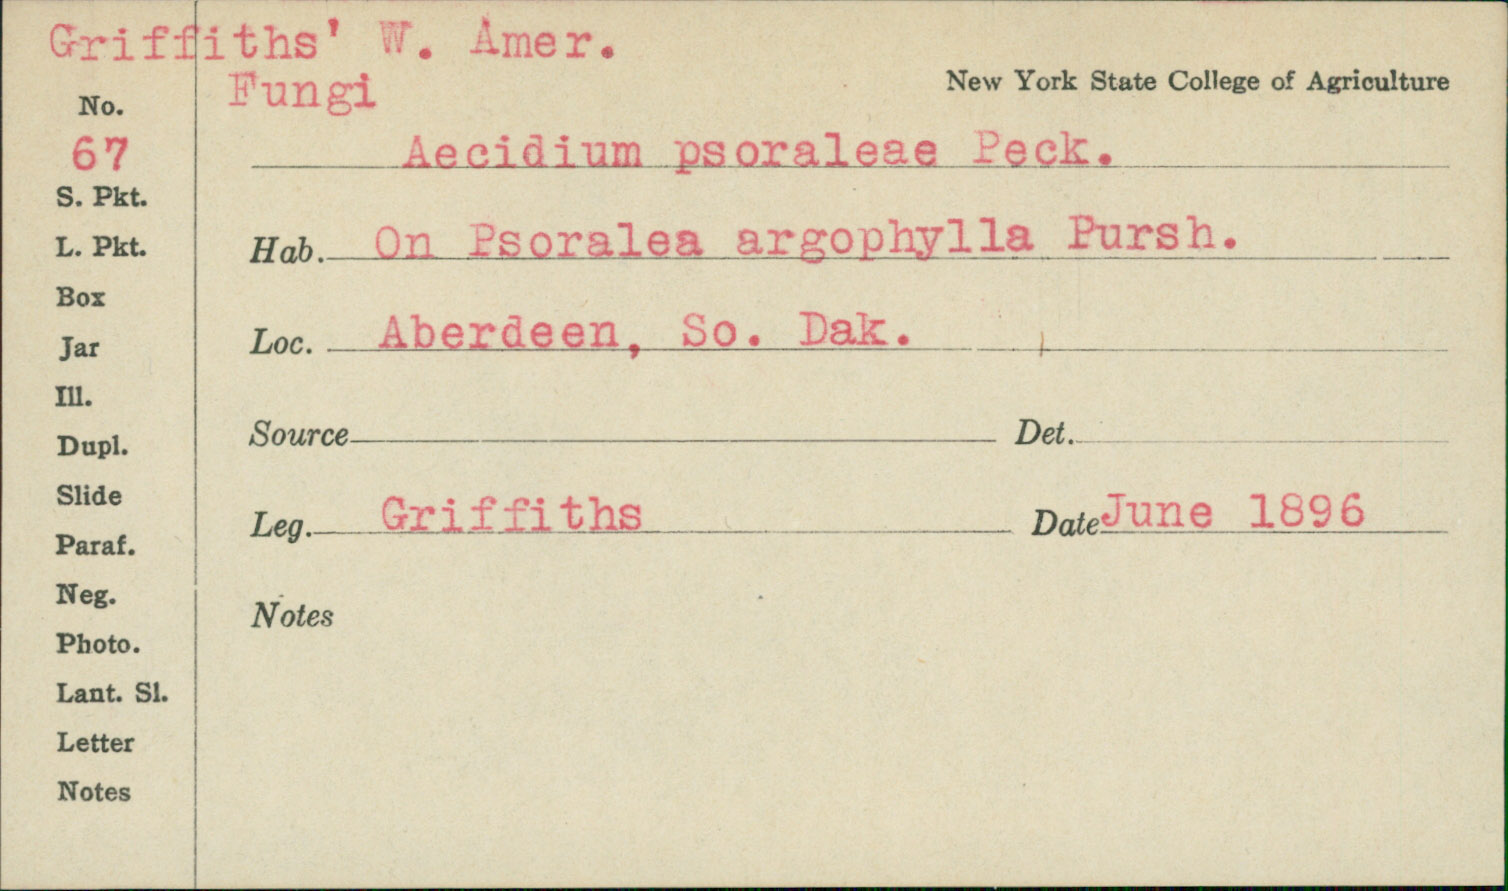 Griffiths' W. Amer.
Fungi
New York State College of Agriculture
No.
67
Aecidium psoraleae Peck.
S. Pkt.
L. Pkt.
Hab. On Psoralea argophylla Pursh.
Box
Jar
Loc. Aberdeen, So. Dak.
Ill.
Dupl.
Source Det.
Slide
Leg. Griffiths Date June 1896
Paraf.
Neg.
Notes
Photo.
Lant. Sl.
Letter
Notes